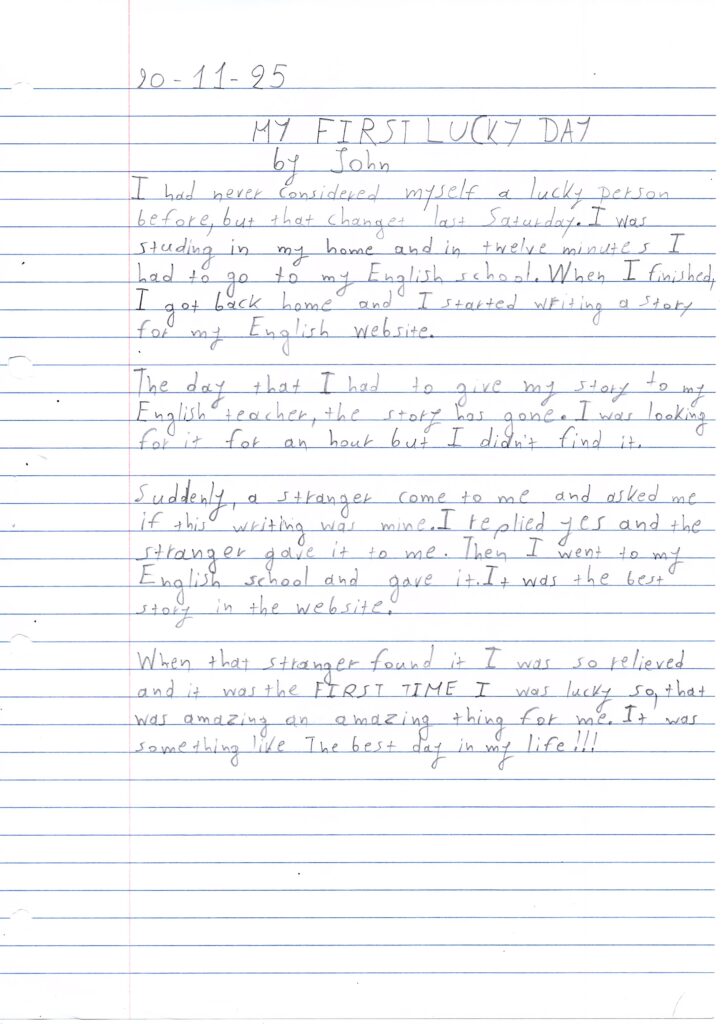 20-11-25
MY FIRST LUCKY DAY
by John
I had never considered myself a lucky person
before, but that changet last Saturday. I was
studing in my home and in twelve minutes I
had to go to my English school. When I finished,
I got back home and I started writing a story
for my English website.
The day that I had to give my story to my
English teacher, the story has gone. I was looking
for it for an hour but I didn't find it.
Suddenly, a stranger come to me and asked me
if this writing was mine. I replied yes and the
stranger gave it to me. Then I went to my
English school and gave it. It was the best
story in the website.
When that stranger found it I was so relieved
and it was the FIRST TIME I was lucky so, that
was amazing an amazing thing for me. It was
something like The best day in my life!!!